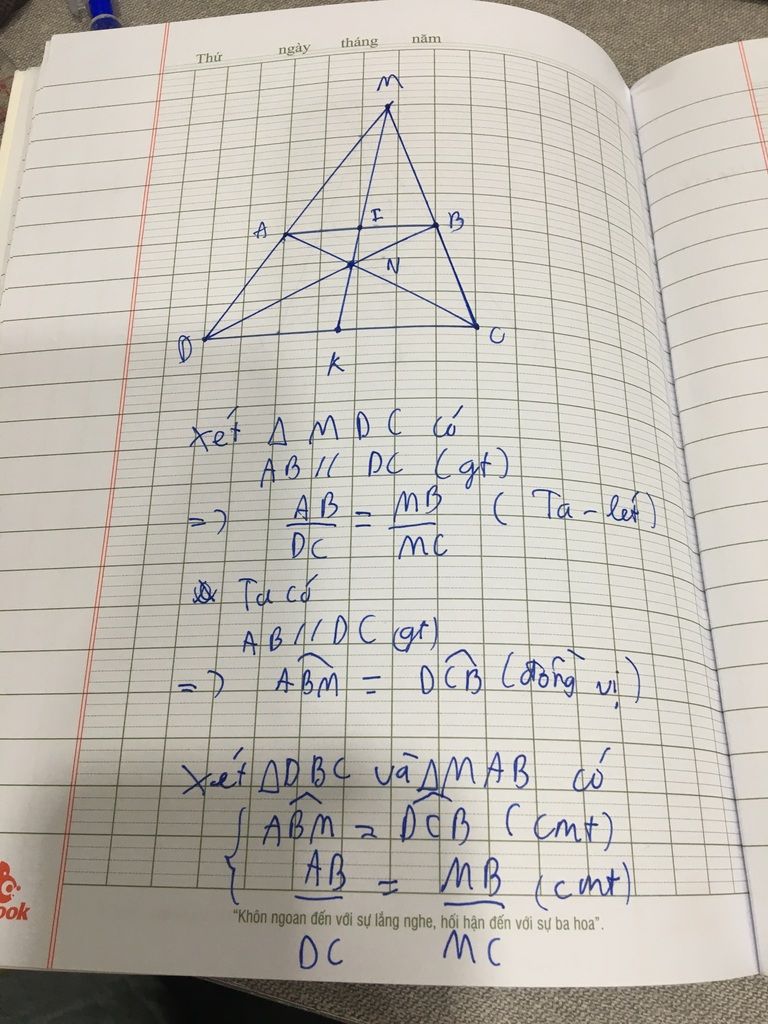 Thứ ngày tháng năm
M
A I B
N
D C
K
Xét Δ MDC có
AB // DC (gt)
=> AB/DC = MB/MC (Ta-lét)
Ta có
AB // DC (gt)
=> ABM = DCB (đồng vị)
Xét ΔDBC và ΔMAB có
ABM = DCB (cmt)
AB/DC = MB/MC (cmt)
"Khôn ngoan đến với sự lắng nghe, hối hận đến với sự ba hoa".
ook